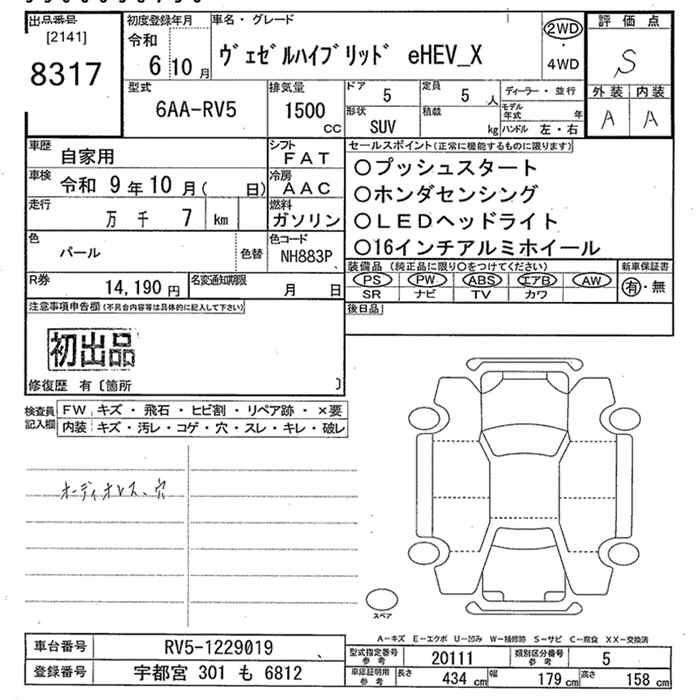 出品番号
[2141]
8317
初度登録年月
令和
6 10 月
車名・グレード
ヴェゼルハイブリッド eHEV_X
2WD
・
4WD
評価点
S
外装 内装
A A
型式
6AA-RV5
排気量
1500
CC
ドア
5
定員
5 人
形状
SUV
積載
kg
ディーラー・並行
モデル
年式 年
ハンドル 左・右
車歴
自家用
シフト
FAT
車検
令和 9 年 10 月( 日)
冷房
AAC
走行
万 千 7 km
燃料
ガソリン
色
パール
色替
色コード
NH883P
R券
14,190 円
名変通知期限
月 日
セールスポイント(正常に機能するものに限ります)
〇プッシュスタート
〇ホンダセンシング
〇LEDヘッドライト
〇16インチアルミホイール
装備品 (純正品に限り〇をつけてください)
PS PW ABS エアB AW
SR ナビ TV カワ
新車保証書
有・無
後日品
注意事項申告欄(不具合内容等は具体的に記入して下さい)
初出品
修復歴 有〔箇所 〕
検査員
記入欄
FW キズ・飛石・ヒビ割・リペア跡・×要
内装 キズ・汚レ・コゲ・穴・スレ・キレ・破レ
オーディオレス、穴
スペア
A－キズ E－エクボ U－凹み W－補修跡 S－サビ C－腐食 XX－交換済
車台番号 RV5-1229019
登録番号 宇都宮 301 も 6812
型式指定番号
参考
20111
類別区分番号
参考
5
車庫証明用
参考
長さ 434 cm 幅 179 cm 高さ 158 cm